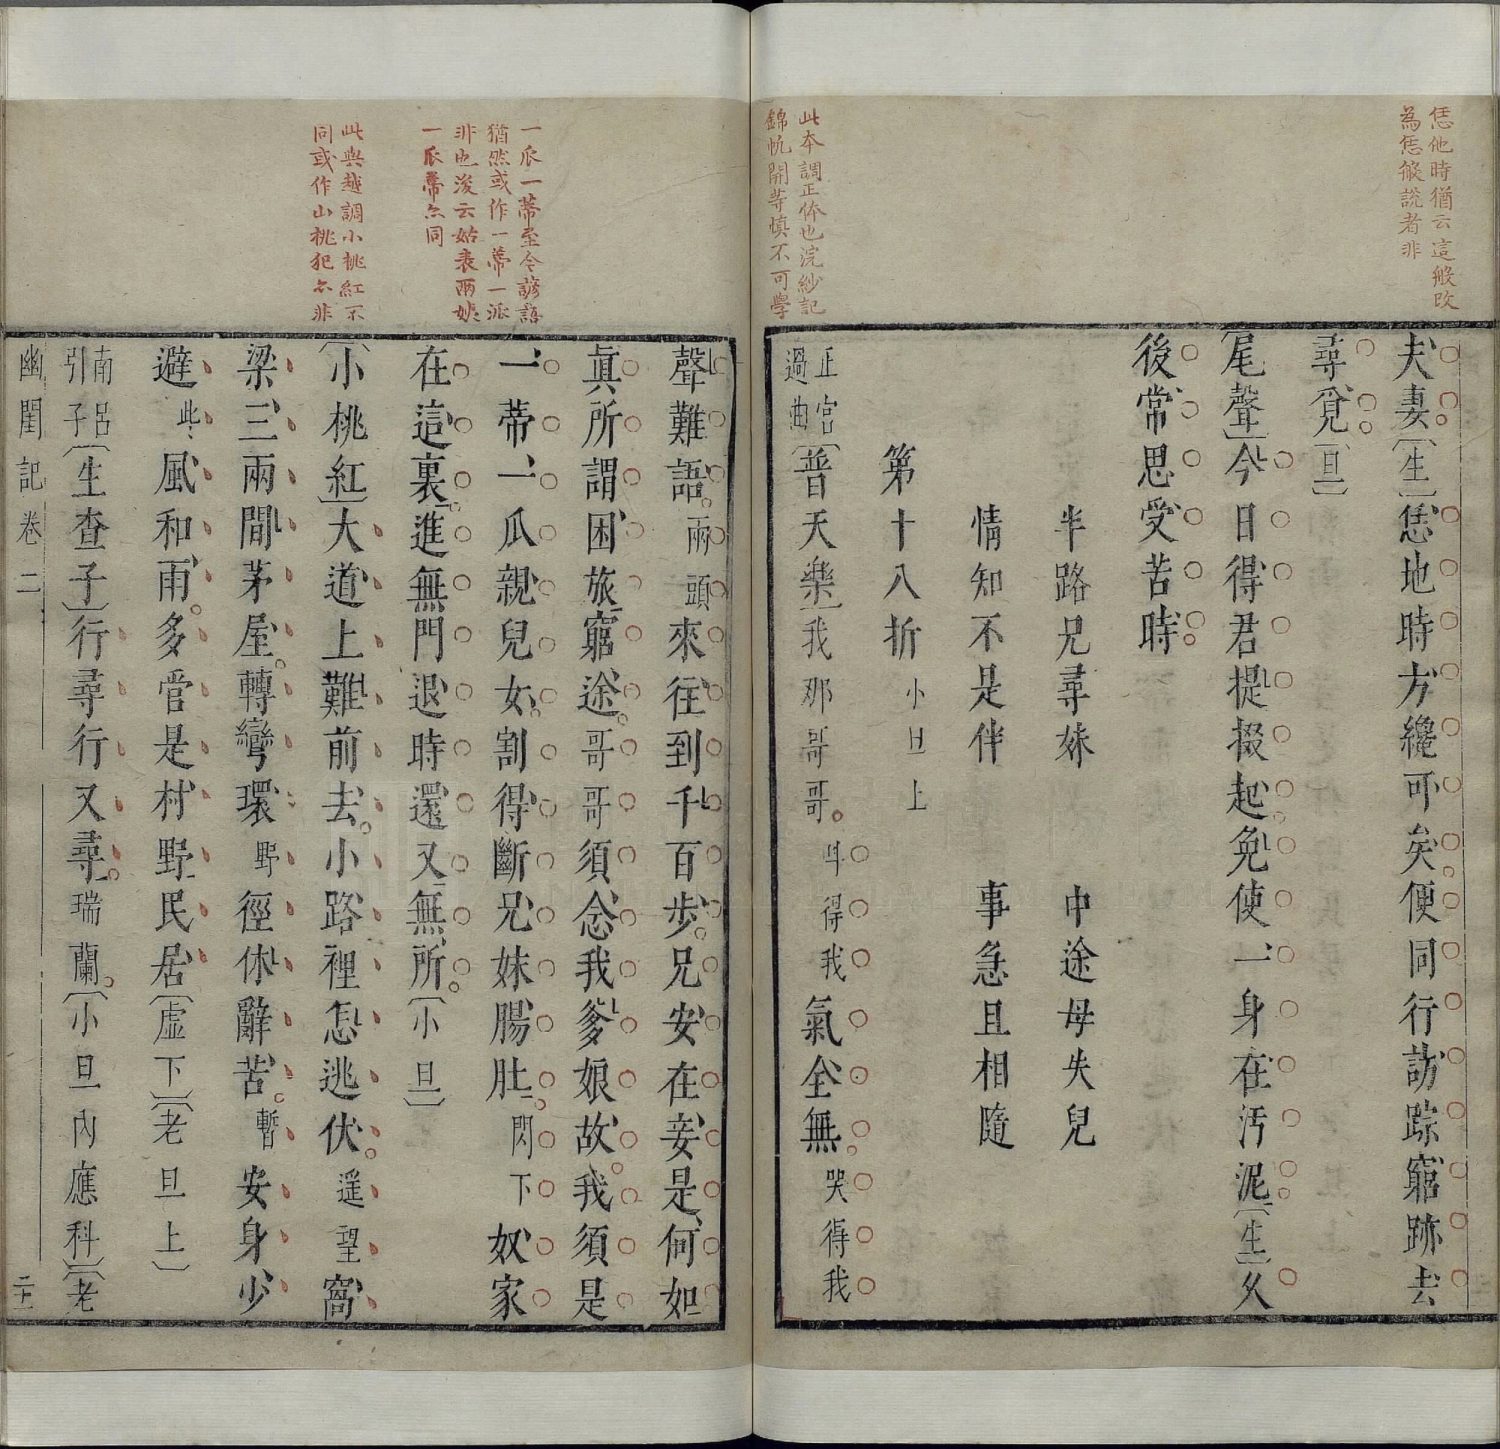 恁他時猶云這般改
為恁般說者非
此本調正体也浣紗記
錦帆開等慎不可學
夫妻〔生〕恁地時方纔可矣便同行訪踪窮跡去
尋覓〔旦〕
〔尾聲〕今日得君提掇起免使一身在汚泥〔生〕久
後常思受苦時
半路兄尋妹 中途母失兒
情知不是伴 事急且相隨
第十八折 小旦上
正宮過曲〔普天樂〕我那哥哥叫得我氣全無哭得我
一瓜一蒂至今諺語
猶然或作一蒂一派
非也後云姑表兩姨
一瓜蒂亦同
此與越調小桃紅不
同或作山桃犯亦非
聲難語兩頭來往到千百步兄安在妾是何如
眞所謂困旅窮途哥哥須念我爹娘故我須是
一蒂一瓜親兒女割得斷兄妹腸肚閃下奴家
在這裏進無門退時還又無所〔小旦〕
〔小桃紅〕大道上難前去小路裡怎逃伏遥望窩
梁三兩間茅屋轉彎環野徑休辭苦暫安身少
避此風和雨多管是村野民居〔虛下〕〔老旦上〕
南呂引子〔生查子〕行尋行又尋瑞蘭〔小旦內應科〕〔老
幽閨記卷二 二十一